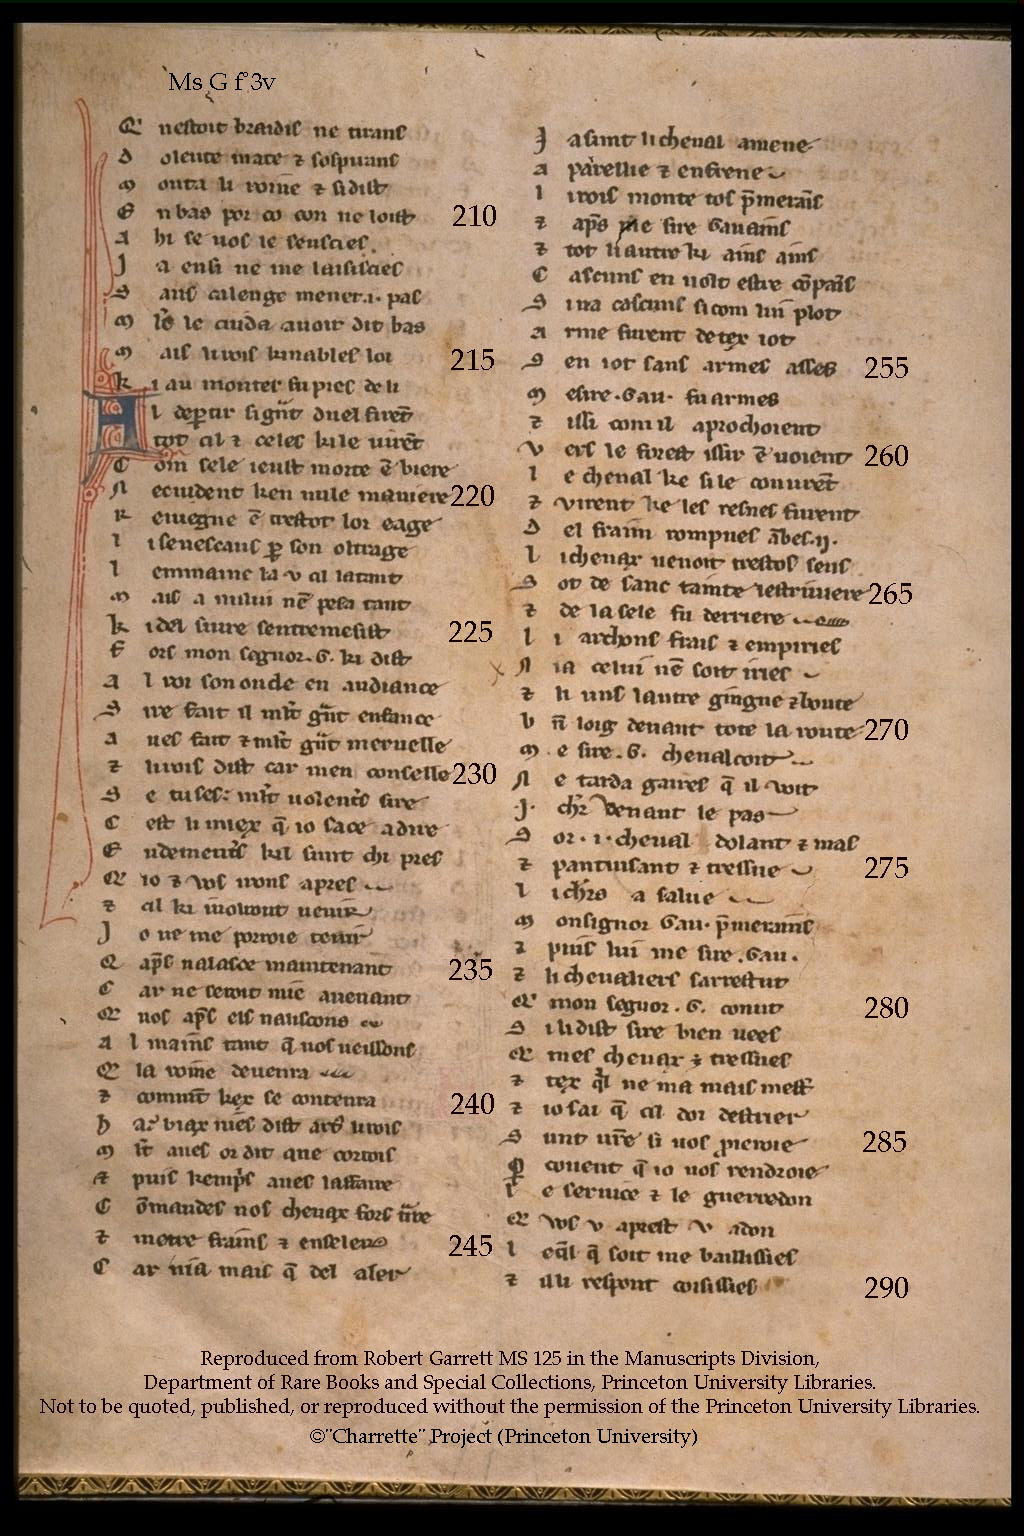 Ms G f°3v
Q' nestoit braidis ne tirans
D olente mate ⁊ sospirans
M onta li roine ⁊ si dist
E n bas por co con ne loist
210
A hi se vos le seuscies
J a ensi ne me laisiscies
S ans calenge mener .i. pas
M lt le cuida avoir dit bas
M ais li cuis kinables loi
215
K i au monter fu pres de li
A l departir si grant duel firent
tot cil ⁊ celes ki le virent
C om sele ieust morte en biere
N e cuident ken nule maniere
220
R eviegne en trestot lor eage
l i senescaus par son oltrage
l emmaine la v cil latint
M ais a nului nen pesa tant
K i del sivre sentremesist
225
F ors mon segnor .G. ki dist
A l roi son oncle en audiance
S ire fait il mlt grant enfance
A ves fait ⁊ mlt grant mervelle
⁊ li rois dist car men conselle
230
C est li miex q̄ io sace a dire
E ndementres kil sunt chi pres
Q' io ⁊ vos irons apres
⁊ cil ki vorront venir
J o ne me porroie tenir
Q apres nalasce maintenant
235
C ar ne seroit mie avenant
Q' nos apres els naliscons
A l mains tant q̄ nos seussons
Q' la roine devenra
⁊ coment kex se contenra
240
h a biax nies dist artus li rois
M lt aves or dit que cortois
⁊ puis kempris aves lafaire
C omandes nos chevax fors traire
⁊ metre frains ⁊ enseler
245
C ar nia mais q̄ del aler
J a sunt li cheval amene
A parellie ⁊ enfrene
l i rois monte tos premerains
⁊ apres me sire Gauvains
⁊ tot li autre ki ains ains
C ascuns en volt estre compains
S i va cascuns si com lui plot
A rme furent de tex i ot
S en i ot sans armes asses
255
M esire .Gau. fu armes
⁊ issi com il aprochoient
V ers le forest issir en voient
260
l e cheval ke si le conurent
⁊ virent ke les resnes furent
D el frain rompues ambes .ij.
l i chevax venoit trestos seus
S ot de sanc tainte lestriviere
265
⁊ de la sele fu derriere
l i archons frais ⁊ empiries
N ia celui nen soit iries
⁊ li uns lautre guigne ⁊ boute
b n loig devant tote la route
270
M e sire .G. chevalcoit
N e tarda gaires q̄ il voit
J. chr venant le pas
S or .i. cheval dolant ⁊ mas
⁊ pantuisant ⁊ tressue
275
l i chrs a salue
M onsignor Gau. premerains
⁊ puis lui me sire .Gau.
⁊ li chevaliers sarrestut
Q' mon segnor .G. conut
280
S i li dist sire bien vees
Q' mes chevax ÷ tressues
⁊ tex ql ne ma mais mest'
⁊ io sai q̄ cil doi destrier
S unt vre si vos pieroie
285
P covent q̄ io vos rendroie
l e service ⁊ le guerredon
Q' vos v a prest v a don
l eql q̄ soit me baillissies
⁊ illi respont coisissies
290
Reproduced from Robert Garrett MS 125 in the Manuscripts Division,
Department of Rare Books and Special Collections, Princeton University Libraries.
Not to be quoted, published, or reproduced without the permission of the Princeton University Libraries.
©"Charrette" Project (Princeton University)